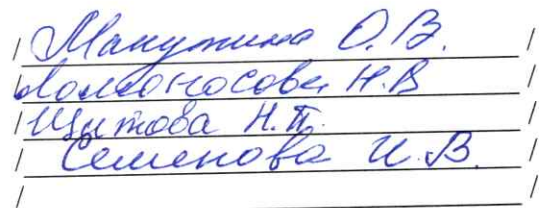 / Макухина О.В. /
/ Ломоносова Н.В /
/ Щитова Н.П. /
/ Семенова И.В. /
/ /